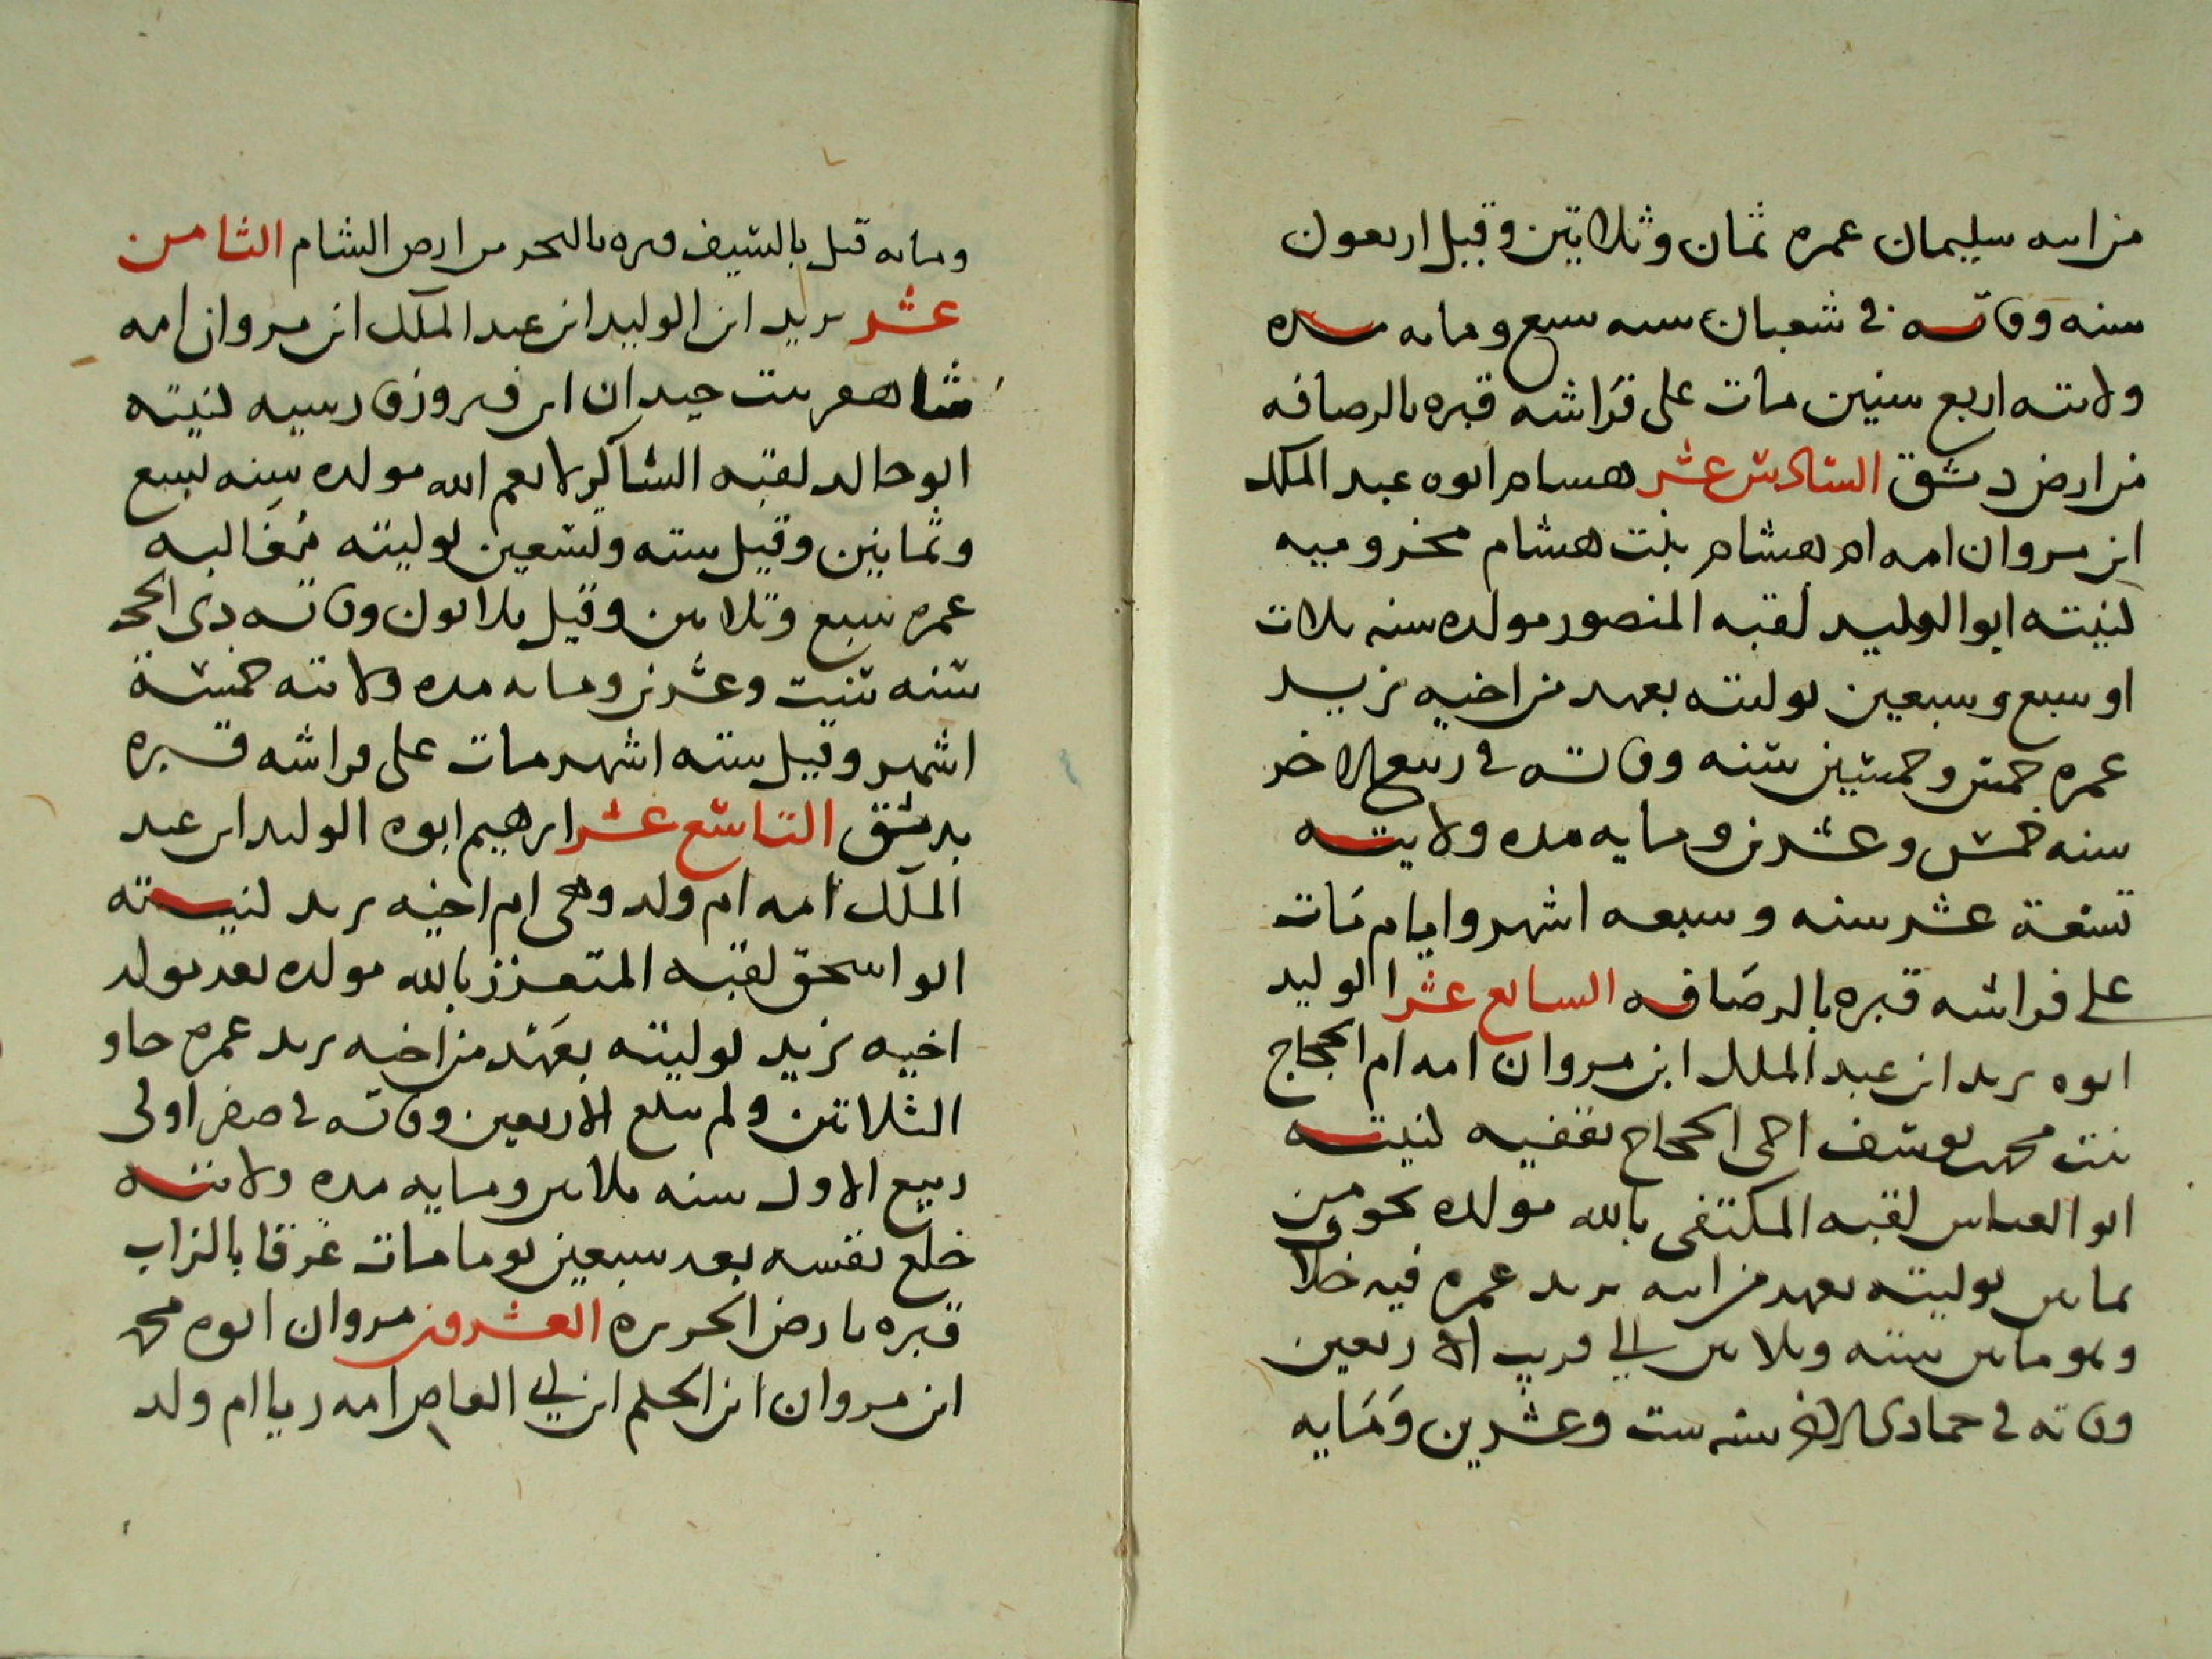 من ابيه سليمان عمره ثمان وثلاثين وقيل اربعون
سنه وفاته في شعبان سنه سبع ومايه مده
ولايته اربع سنين مات على فراشه قبره بالرصافه
من ارض دمشق السادس عشر هشام ابوه عبد الملك
ابن مروان امه ام هشام بنت هشام مخزوميه
كنيته ابو الوليد لقبه المنصور مولده سنه ثلاث
او سبع وسبعين توليته بعهد من اخيه يزيد
عمره خمس وخمسين سنه وفاته في ربيع الاخر
سنه خمس وعشرين ومايه مده ولايته
تسعة عشر سنه وسبعه اشهر وايام مات
على فراشه قبره بالرصافه السابع عشر الوليد
ابوه يزيد ابن عبد الملك ابن مروان امه ام الحجاج
بنت محمد يوسف اخى الحجاج ثقفيه كنيته
ابو العباس لقبه المكتفى بالله مولده نحو من
ثمانين توليته بعهد من ابيه يزيد عمره فيه خلاف
وهو مابين سته وثلاثين الي قريب الاربعين
وفاته في جمادى الاخر سنه ست وعشرين ومايه
ومايه قتل بالسيف قبره بالبحر من ارض الشام الثامن
عشر يزيد ابن الوليد ابن عبد الملك ابن مروان امه
شاهفر بنت جيدان ابن فيروز فارسيه كنيته
ابو خالد لقبه الشاكر لانعم الله مولده سنه تسع
وثمانين وقيل سته وتسعين توليته مغالبه
عمره سبع وثلاثين وقيل ثلاثون وفاته ذى الحجه
سنه ست وعشرين ومايه مده ولايته خمسة
اشهر وقيل سته اشهر مات على فراشه قبره
بدمشق التاسع عشر ابرهيم ابوه الوليد ابن عبد
الملك امه ام ولد وهى ام اخيه يزيد كنيته
ابو اسحق لقبه المتعزز بالله مولده بعد مولد
اخيه يزيد توليته بعهد من اخيه يزيد عمره جاوز
الثلاثين ولم يبلغ الاربعين وفاته في صفر اولى
ربيع الاول سنه ثلاثين ومايه مده ولايته
خلع نفسه بعد سبعين يوما مات غرقا بالزاب
قبره بارض الجزيره العشرون مروان ابوه محمد
ابن مروان ابن الحكم ابن ابي العاص امه ريا ام ولد